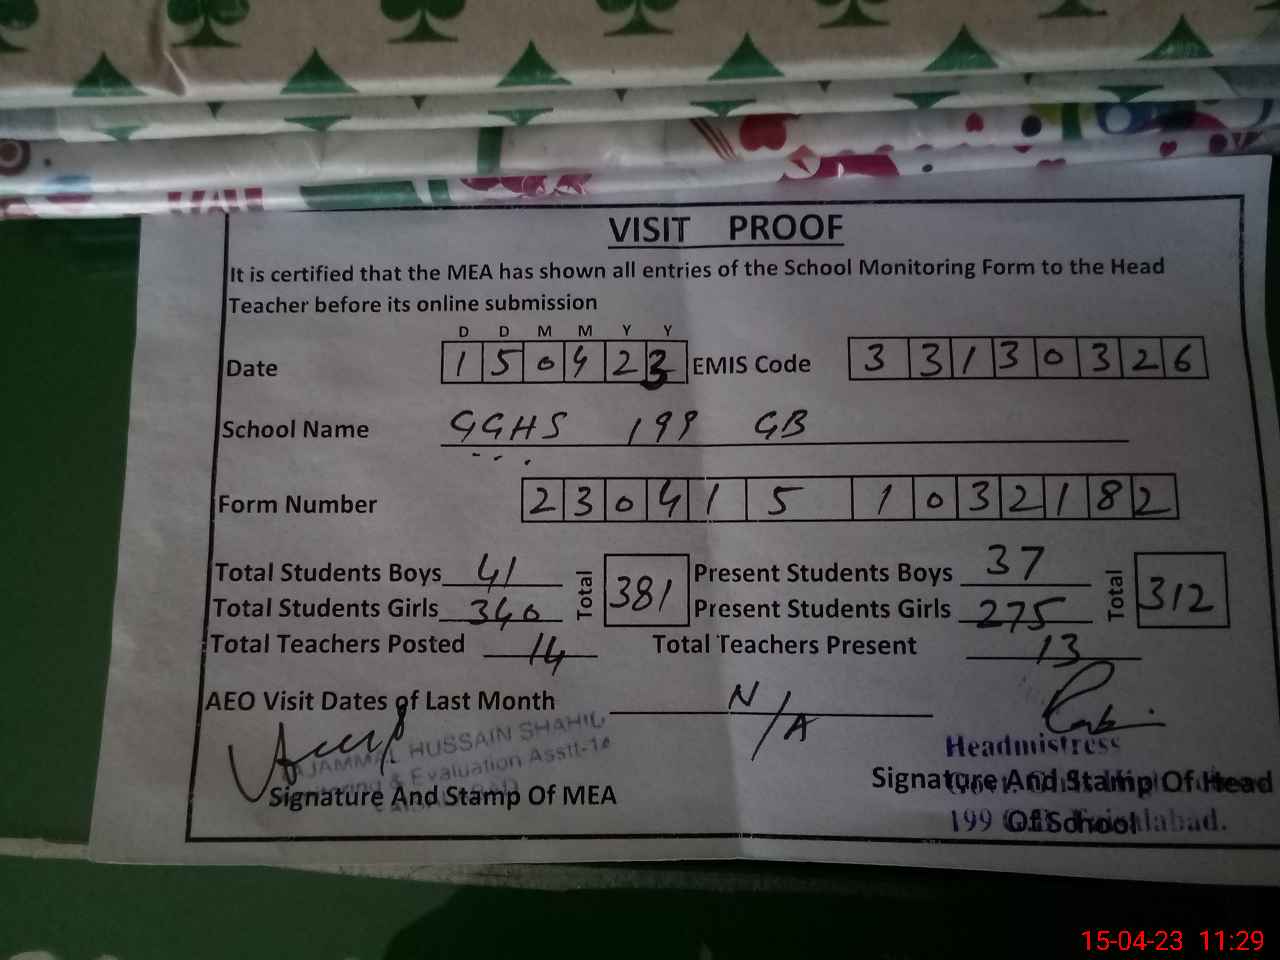 VISIT PROOF
It is certified that the MEA has shown all entries of the School Monitoring Form to the Head
Teacher before its online submission
D D M M Y Y
Date 1 5 0 4 2 3 EMIS Code 3 3 1 3 0 3 2 6
School Name GGHS 199 GB
Form Number 2 3 0 4 1 5 1 0 3 2 1 8 2
Total Students Boys 41 Total 381 Present Students Boys 37 Total 312
Total Students Girls 340 Present Students Girls 275
Total Teachers Posted 14 Total Teachers Present 13
AEO Visit Dates of Last Month N/A
HUSSAIN SHAHID
& Evaluation Asstt-1
Headmistress
Signature And Stamp Of MEA Signature And Stamp Of Head
199 Of School
15-04-23 11:29